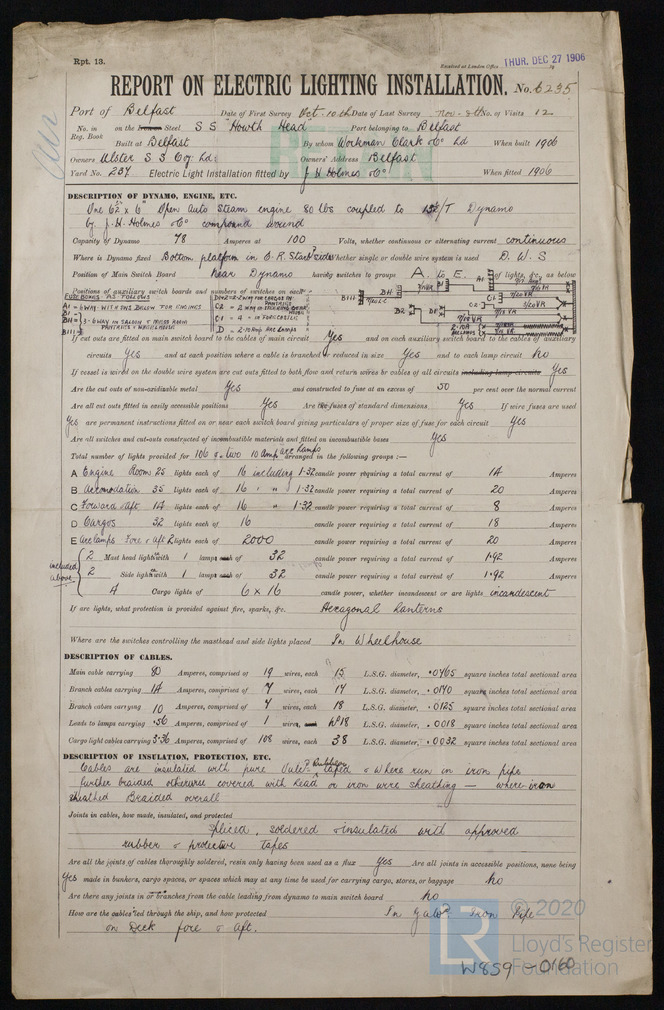 Rpt. 13.
Received at London Office THUR. DEC 27 1906
REPORT ON ELECTRIC LIGHTING INSTALLATION. No. 6235
Port of Belfast Date of First Survey Oct. 10th Date of Last Survey Nov. 8th No. of Visits 12
No. in Reg. Book on the Iron or Steel S S "Howth Head" Port belonging to Belfast
Built at Belfast By whom Workman Clark & Co Ld When built 1906
Owners Ulster S S Coy: Ld: Owners' Address Belfast
Yard No. 237 Electric Light Installation fitted by J H Holmes & Co When fitted 1906
DESCRIPTION OF DYNAMO, ENGINE, ETC.
One 6½ x 6" Open Auto Steam engine 80 lbs coupled to Dynamo
by J. H. Holmes & Co compound wound
Capacity of Dynamo 78 Amperes at 100 Volts, whether continuous or alternating current continuous
Where is Dynamo fixed Bottom platform in E. R. Starbd side whether single or double wire system is used D. W. S
Position of Main Switch Board near Dynamo having switches to groups A. to E. of lights, &c., as below
Positions of auxiliary switch boards and numbers of switches on each
FUSE BOXES AS FOLLOWS
A1 = 6 WAY WITH ONE BELOW FOR ENGINES
B1 =
BII =
BIII =
3-6 WAY IN SALOON & MESS ROOM
PANTRIES & WHEELHOUSE
C2 = 2 WAY IN STEERING GEAR HOUSE
C1 = 4 - IN FORECASTLE
D = 2-10 Amp Arc Lamps
If cut outs are fitted on main switch board to the cables of main circuit Yes and on each auxiliary switch board to the cables of auxiliary
circuits Yes and at each position where a cable is branched or reduced in size Yes and to each lamp circuit No
If vessel is wired on the double wire system are cut outs fitted to both flow and return wires or cables of all circuits including lamp circuits Yes
Are the cut outs of non-oxidizable metal Yes and constructed to fuse at an excess of 50 per cent over the normal current
Are all cut outs fitted in easily accessible positions Yes Are the fuses of standard dimensions Yes If wire fuses are used
Yes are permanent instructions fitted on or near each switch board giving particulars of proper size of fuse for each circuit Yes
Are all switches and cut-outs constructed of incombustible materials and fitted on incombustible bases Yes
Total number of lights provided for 106 & two 10 Amp arc lamps arranged in the following groups :—
A Engine Room 25 lights each of 16 including 1-32 candle power requiring a total current of 14 Amperes
B Accomodation 35 lights each of 16 " " 1-32 candle power requiring a total current of 20 Amperes
C Forward & Aft 14 lights each of 16 " 1-32 candle power requiring a total current of 8 Amperes
D Cargos 32 lights each of 16 candle power requiring a total current of 18 Amperes
E Arc lamps Fore & Aft 2 lights each of 2000 candle power requiring a total current of 20 Amperes
included above
2 Mast head lights with 1 lamps each of 32 candle power requiring a total current of 1.92 Amperes
2 Side lights with 1 lamps each of 32 candle power requiring a total current of 1.92 Amperes
4 Cargo lights of 6 x 16 candle power, whether incandescent or arc lights incandescent
If arc lights, what protection is provided against fire, sparks, &c. Hexagonal Lanterns
Where are the switches controlling the masthead and side lights placed In Wheelhouse
DESCRIPTION OF CABLES.
Main cable carrying 80 Amperes, comprised of 19 wires, each 15 L.S.G. diameter, .0765 square inches total sectional area
Branch cables carrying 14 Amperes, comprised of 7 wires, each 17 L.S.G. diameter, .0170 square inches total sectional area
Branch cables carrying 10 Amperes, comprised of 7 wires, each 18 L.S.G. diameter, .0125 square inches total sectional area
Leads to lamps carrying .56 Amperes, comprised of 1 wires, each No 18 L.S.G. diameter, .0018 square inches total sectional area
Cargo light cables carrying 3.36 Amperes, comprised of 108 wires, each 38 L.S.G. diameter, .0032 square inches total sectional area
DESCRIPTION OF INSULATION, PROTECTION, ETC.
Cables are insulated with pure & Vulcd Rubber taped & where run in iron pipe
further braided otherwise covered with Lead or iron wire sheathing — where iron
sheathed Braided overall
Joints in cables, how made, insulated, and protected
Spliced, soldered & insulated with approved
rubber & protective tapes
Are all the joints of cables thoroughly soldered, resin only having been used as a flux Yes Are all joints in accessible positions, none being
Yes made in bunkers, cargo spaces, or spaces which may at any time be used for carrying cargo, stores, or baggage No
Are there any joints in or branches from the cable leading from dynamo to main switch board No
How are the cables led through the ship, and how protected In Galvd Iron Pipe
on Deck fore & aft.
© 2020
LR
Lloyd's Register
Foundation
W859-0160